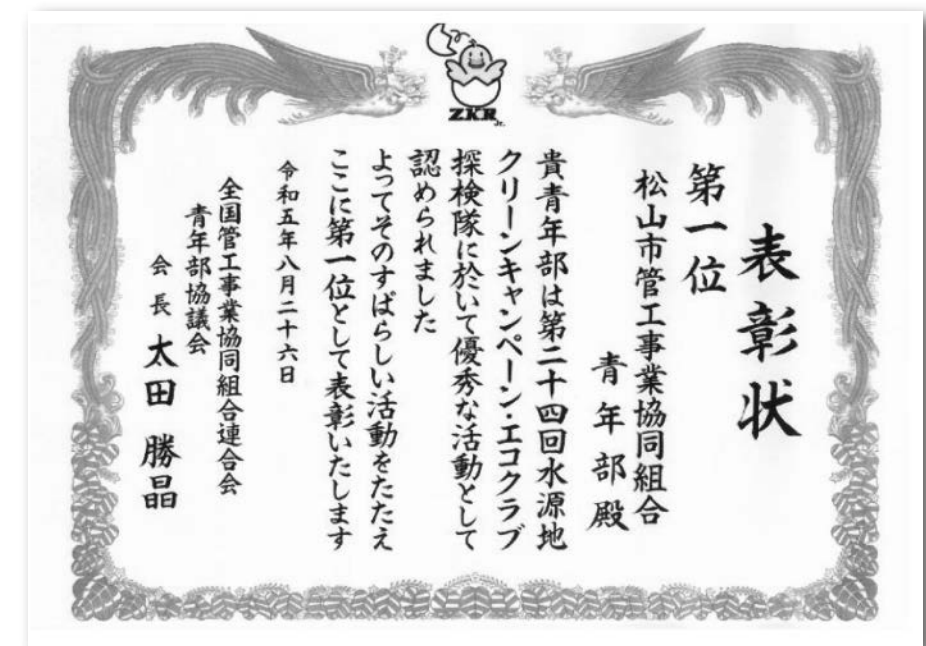 ZKR Jr.
表彰状
第一位
松山市管工事業協同組合
青年部殿
貴青年部は第二十四回水源地
クリーンキャンペーン・エコクラブ
探検隊に於いて優秀な活動として
認められました
よってそのすばらしい活動をたたえ
ここに第一位として表彰いたします
令和五年八月二十六日
全国管工事業協同組合連合会
青年部協議会
会長 太田勝晶